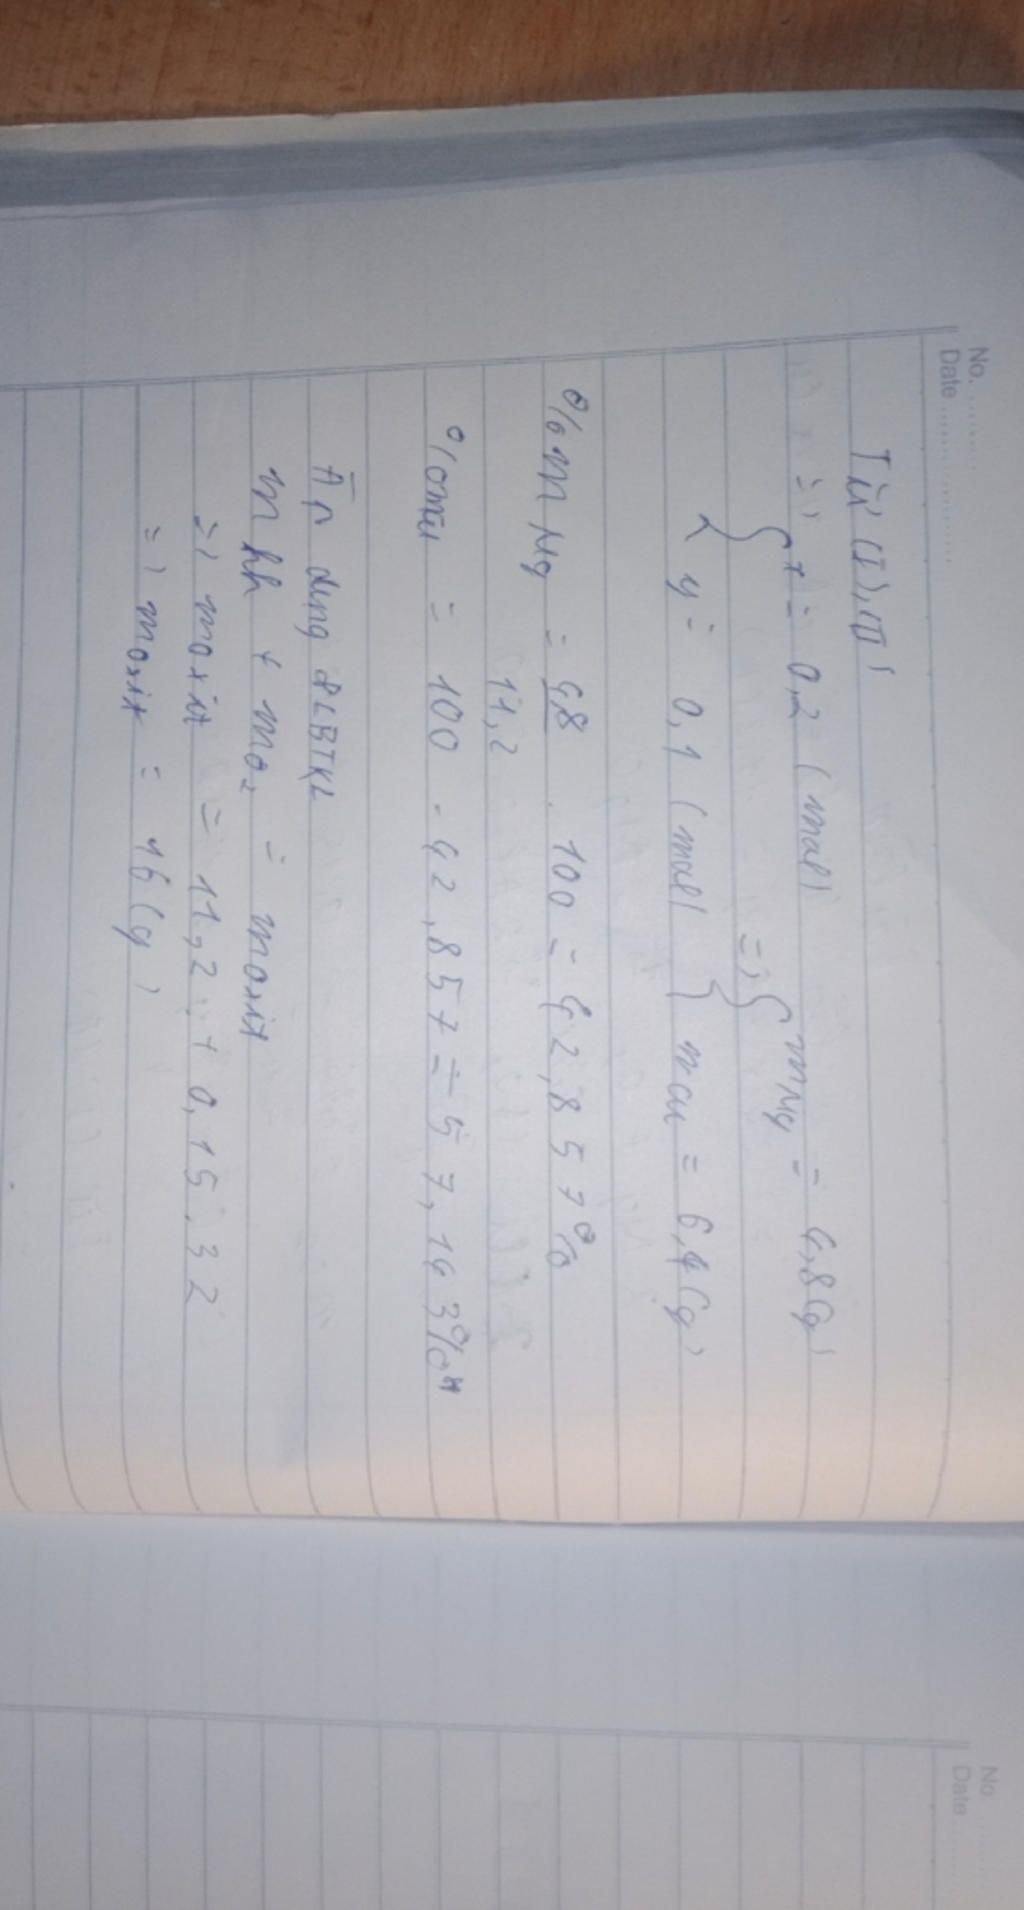 No. ............
Date ..................
Từ (I), (II)
=> { x = 0,2 (mol) => { mMg = 4,8 (g)
y = 0,1 (mol) } mCu = 6,4 (g)
%mMg = 4,8 . 100 = 42,857%
11,2
%mCu = 100 - 42,857 = 57,143%
Áp dụng ĐLBTKL
mhh + mO2 = moxit
=> moxit = 11,2 + 0,15.32
=> moxit = 16 (g)
No. ............
Date ............